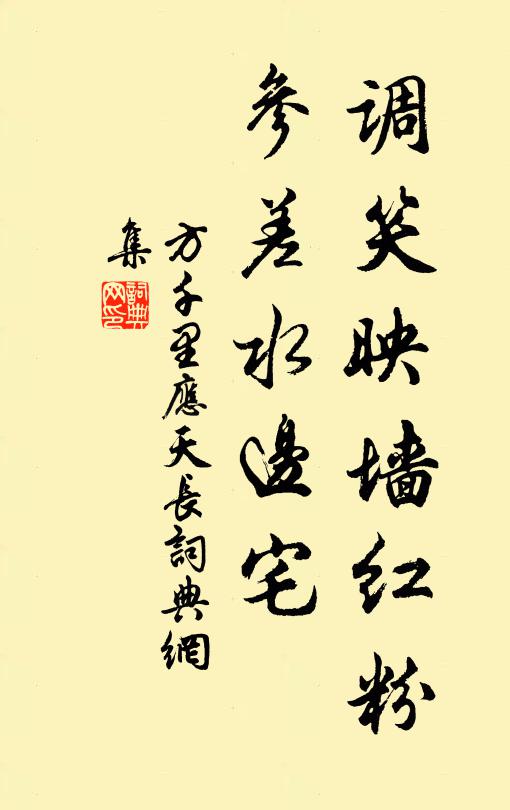 调笑映墙红粉
参差水邊宅
方千里應天長詞典網
集
詞典
网印